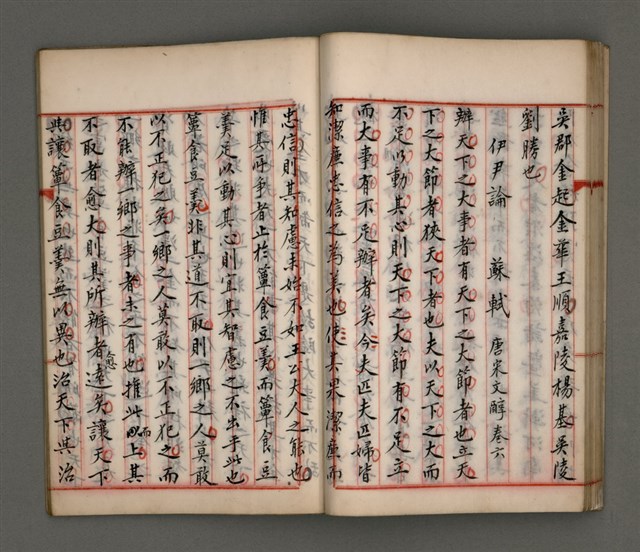 吳郡金起金華王順嘉陵楊基吳陵
劉勝也
伊尹論 蘇軾 唐宋文醇卷六
辦天下之大事者有天下之大節者也立天
下之大節者狹天下者也夫以天下之大而
不足以動其心則天下之大節有不足立
而大事有不足辦者矣今夫匹夫匹婦皆
知潔廉忠信之為美也使其果潔廉而
忠信則其知慮未始不如王公大人之能也
惟其所爭者止於簞食豆羹而簞食豆
羹足以動其心則宜其智慮之不出乎此也
簞食豆羹非其道不取則一鄉之人莫敢
以不正犯之矣一鄉之人莫敢以不正犯之而
不能辦一鄉之事者未之有也推此而以上其
不取者愈大則其所辦者愈遠矣讓天下
與讓簞食豆羹無以異也治天下與治